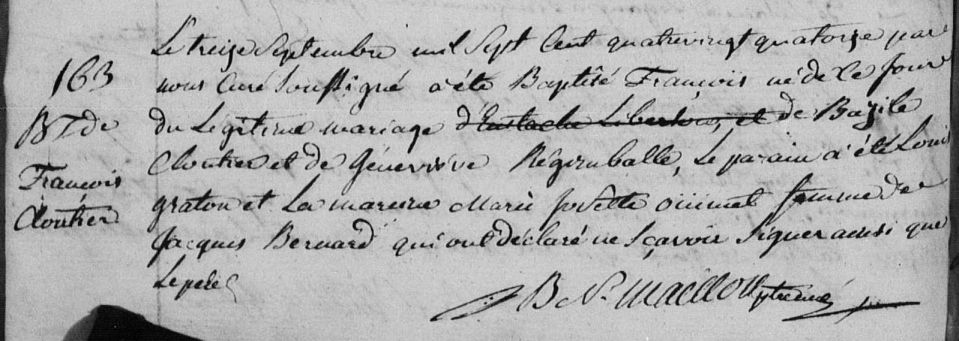 163
Bt de
François
Cloutier
Le treize Septembre mil Sept Cent quatrevingt quatorze par
nous Curé Soussigné a été Baptisé François né de ce jour
du Legitime mariage d'Eustache Libersan, et de Bazile
Cloutier et de Géneviéve Régimballe, Le parain a été Louis
graton et La mareine Marie josette ouimet femme de
Jacques Bernard qui ont déclaré ne Sçavoir Signer ainsi que
Le pere
B N Maillou ptre curé